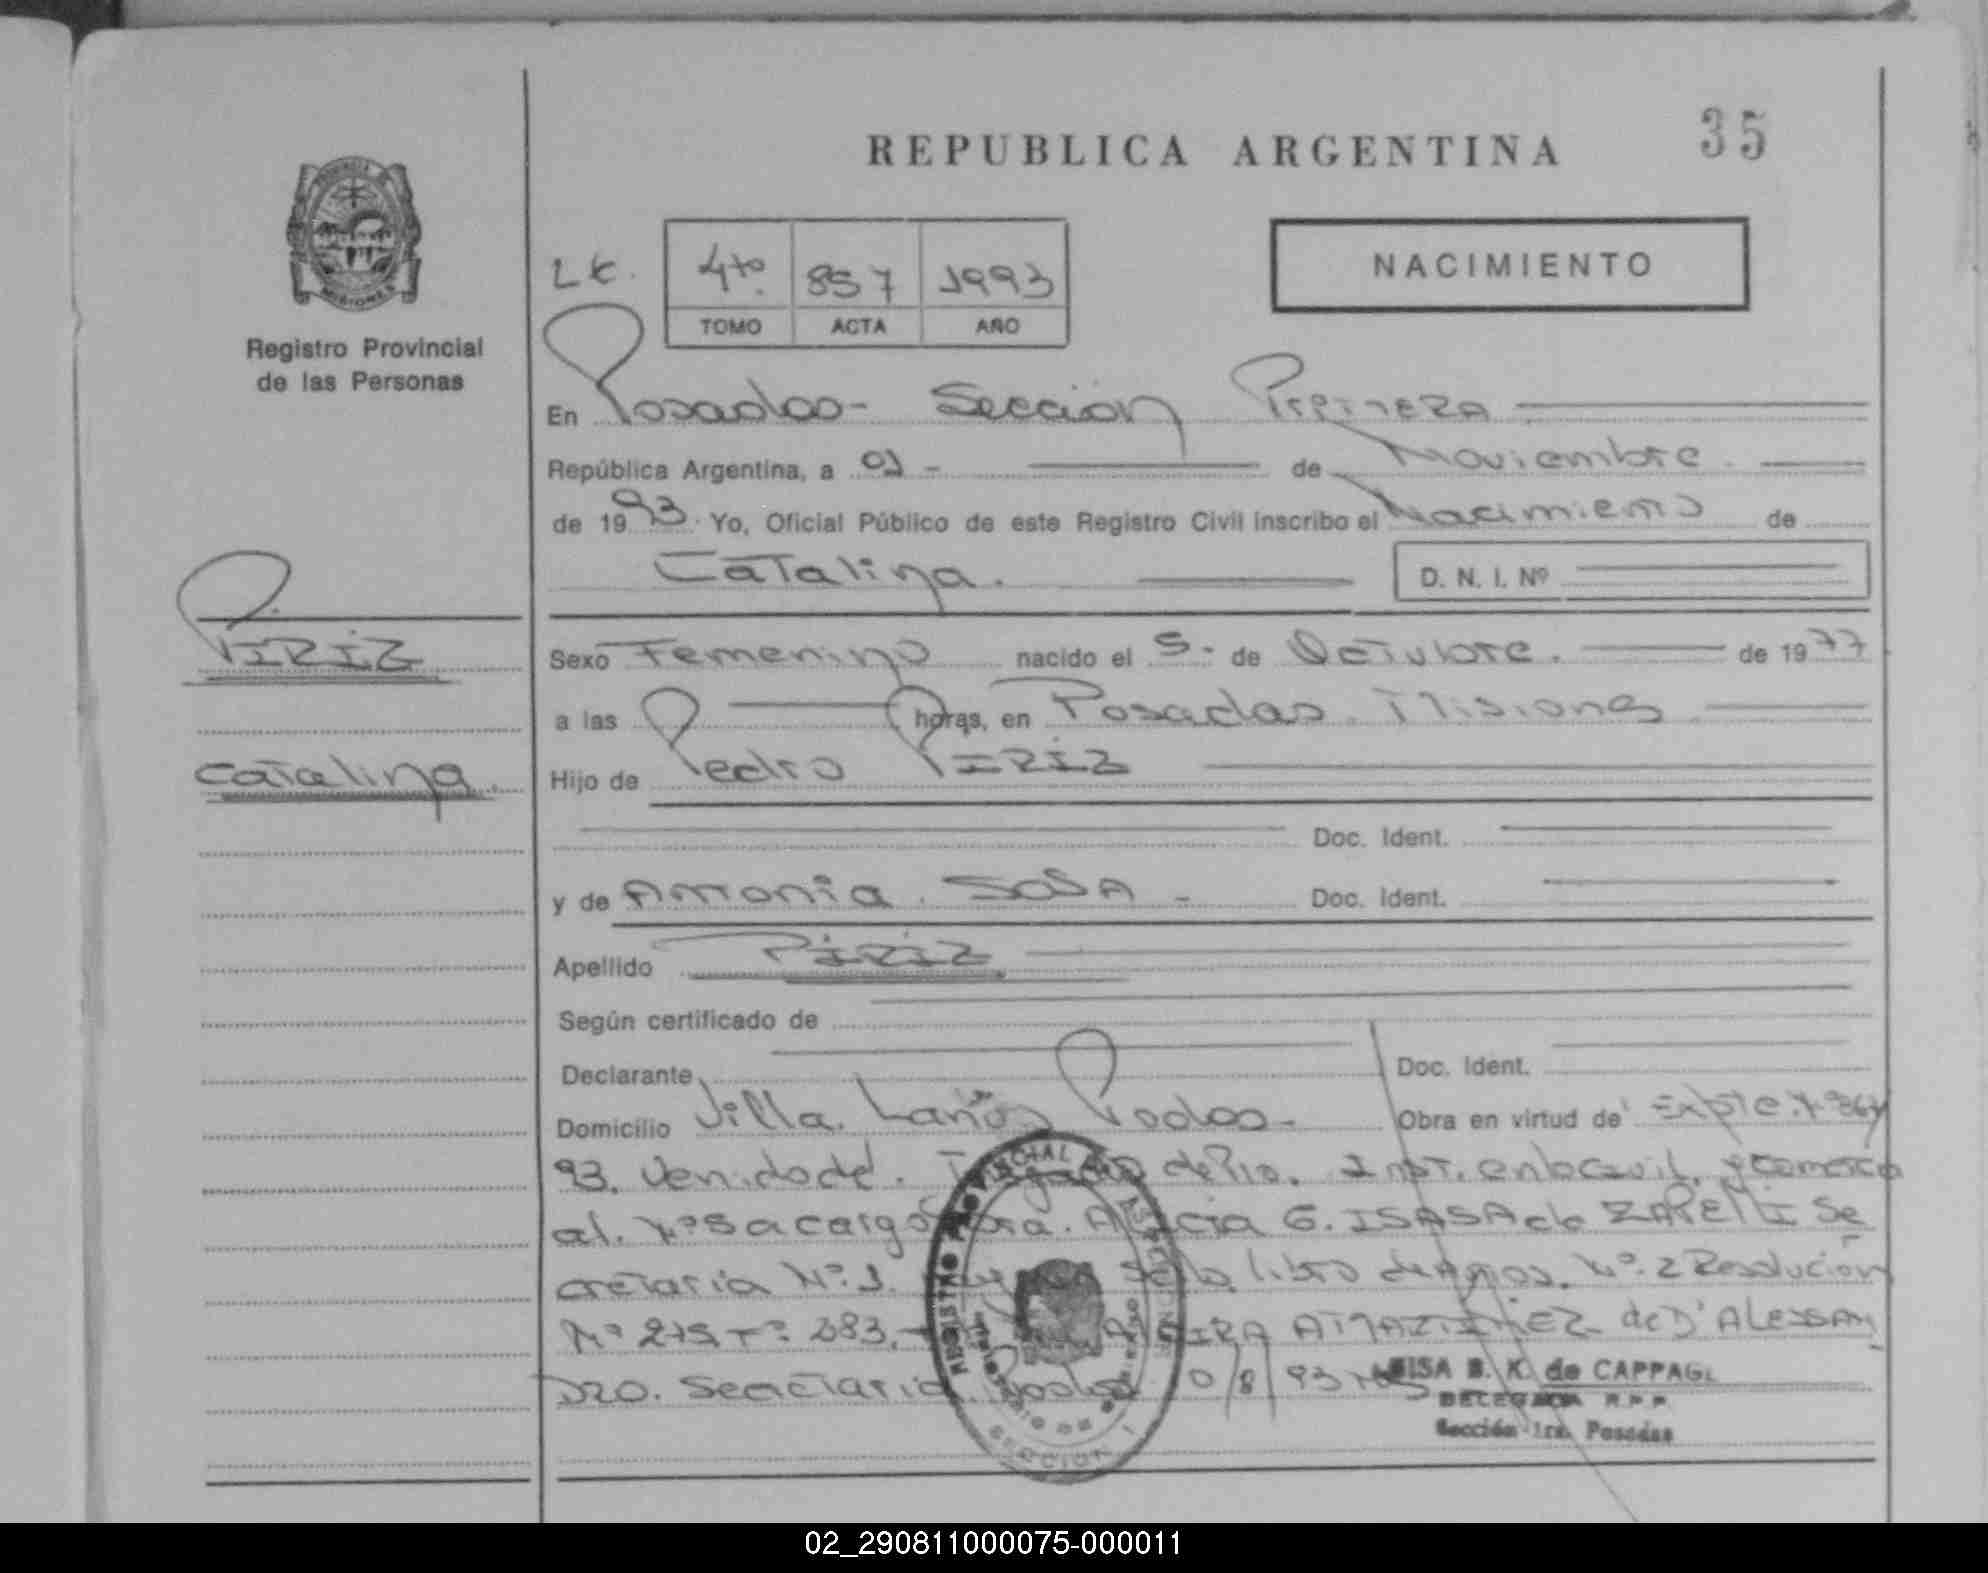 REPUBLICA ARGENTINA
35
PROVINCIA
MISIONES
Registro Provincial
de las Personas
NACIMIENTO
4to. 857 1993
TOMO ACTA AÑO
En Posadas - Sección Primera
República Argentina, a 01 - de Noviembre.
de 1993. Yo, Oficial Público de este Registro Civil inscribo el Nacimiento de
Catalina. D. N. I. Nº
PIRIZ
Sexo Femenino nacido el 5 - de Octubre. de 1977
a las horas, en Posadas. Misiones
Catalina.
Hijo de Pedro PIRIZ
Doc. Ident.
y de Antonia. SOSA - Doc. Ident.
Apellido PIRIZ
Según certificado de
Declarante Doc. Ident.
Domicilio Villa. Lanús Psdas - Obra en virtud de Expte. Nº
93. Venido del. Juzgado de 1ra. Inst. en lo Civil. y Comerci
al. Nº 5 a cargo Dra. Alicia G. ISASA de ZAPELLI Se
cretaria Nº 1. libro de Nº 2 Resolución
Nº 215 Fº 283. de D'ALESSAN
DRO. Secretaria. Psdas 93
ISA B. K. de CAPPAG
DELEGADA R.P.P.
Sección 1ra. Posadas
REGISTRO PROVINCIAL DE LAS PERSONAS
SECCION 1
02_290811000075-000011